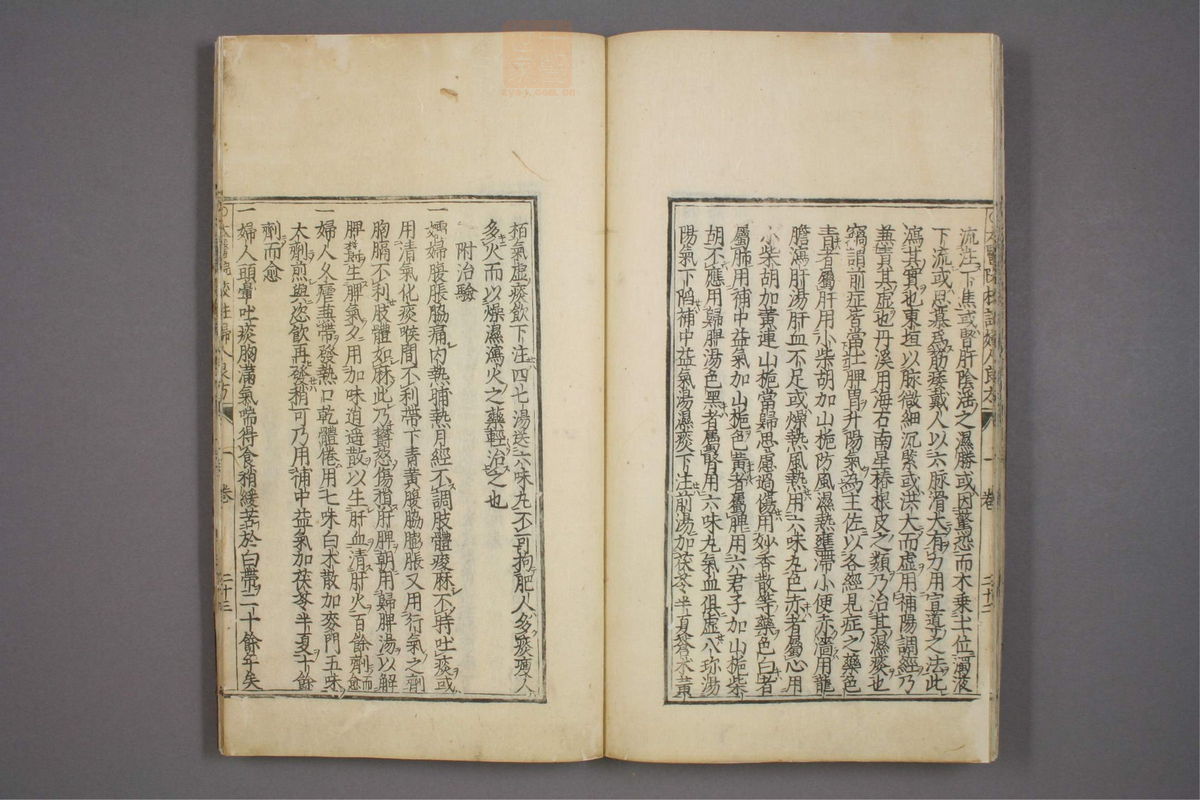 流注下焦或腎肝陰淫之濕勝或因驚恐而木乗土位濁液
下流或思慕爲筋痿戴人以六脉滑大有力用宣導之法此
瀉其實也東垣以脉微細沉緊或洪大而虚用補陽調經乃
兼責其虚也丹溪用海石南星椿根皮之類乃治其濕痰也
竊謂前症皆當壮脾胃升陽氣為主佐以各經見症之藥色
青者屬肝用小柴胡加山梔防風濕熱壅滞小便赤濇用龍
膽瀉肝湯肝血不足或燥熱風熱用六味丸色赤者屬心用
小柴胡加黄連山梔當歸思慮過傷用妙香散等藥色白者
屬肺用補中益氣加山梔色黄者屬脾用六君子加山梔柴
胡不應用歸脾湯色黑者屬腎用六味丸氣血俱虚八珎湯
陽氣下陷補中益氣湯濕痰下注前湯加茯苓半夏蒼术黄
栢氣虚痰飲下注四七湯送六味丸不可拘肥人多痰瘦人
多火而以燥濕瀉火之藥輕治之也
附治驗
一孀婦腹脹脇痛内熱晡熱月經不調肢體痠麻不時吐痰或
用清氣化痰喉間不利帯下青黄腹脇膨脹又用行氣之劑
胸膈不利肢體如麻此乃欝怒傷損肝脾朝用歸脾湯以解
脾欝生脾氣夕用加味逍遥散以生肝血清肝火百餘劑而愈
一婦人久瘧兼帯發熱口乾體倦用七味白术散加麥門五味
大劑煎與恣飲再發稍可乃用補中益氣加茯苓半夏十餘
劑而愈
一婦人頭暈吐痰胸満氣喘得食稍緩苦於白帯二十餘年矣
太醫院校註婦人良方 一卷 二十三